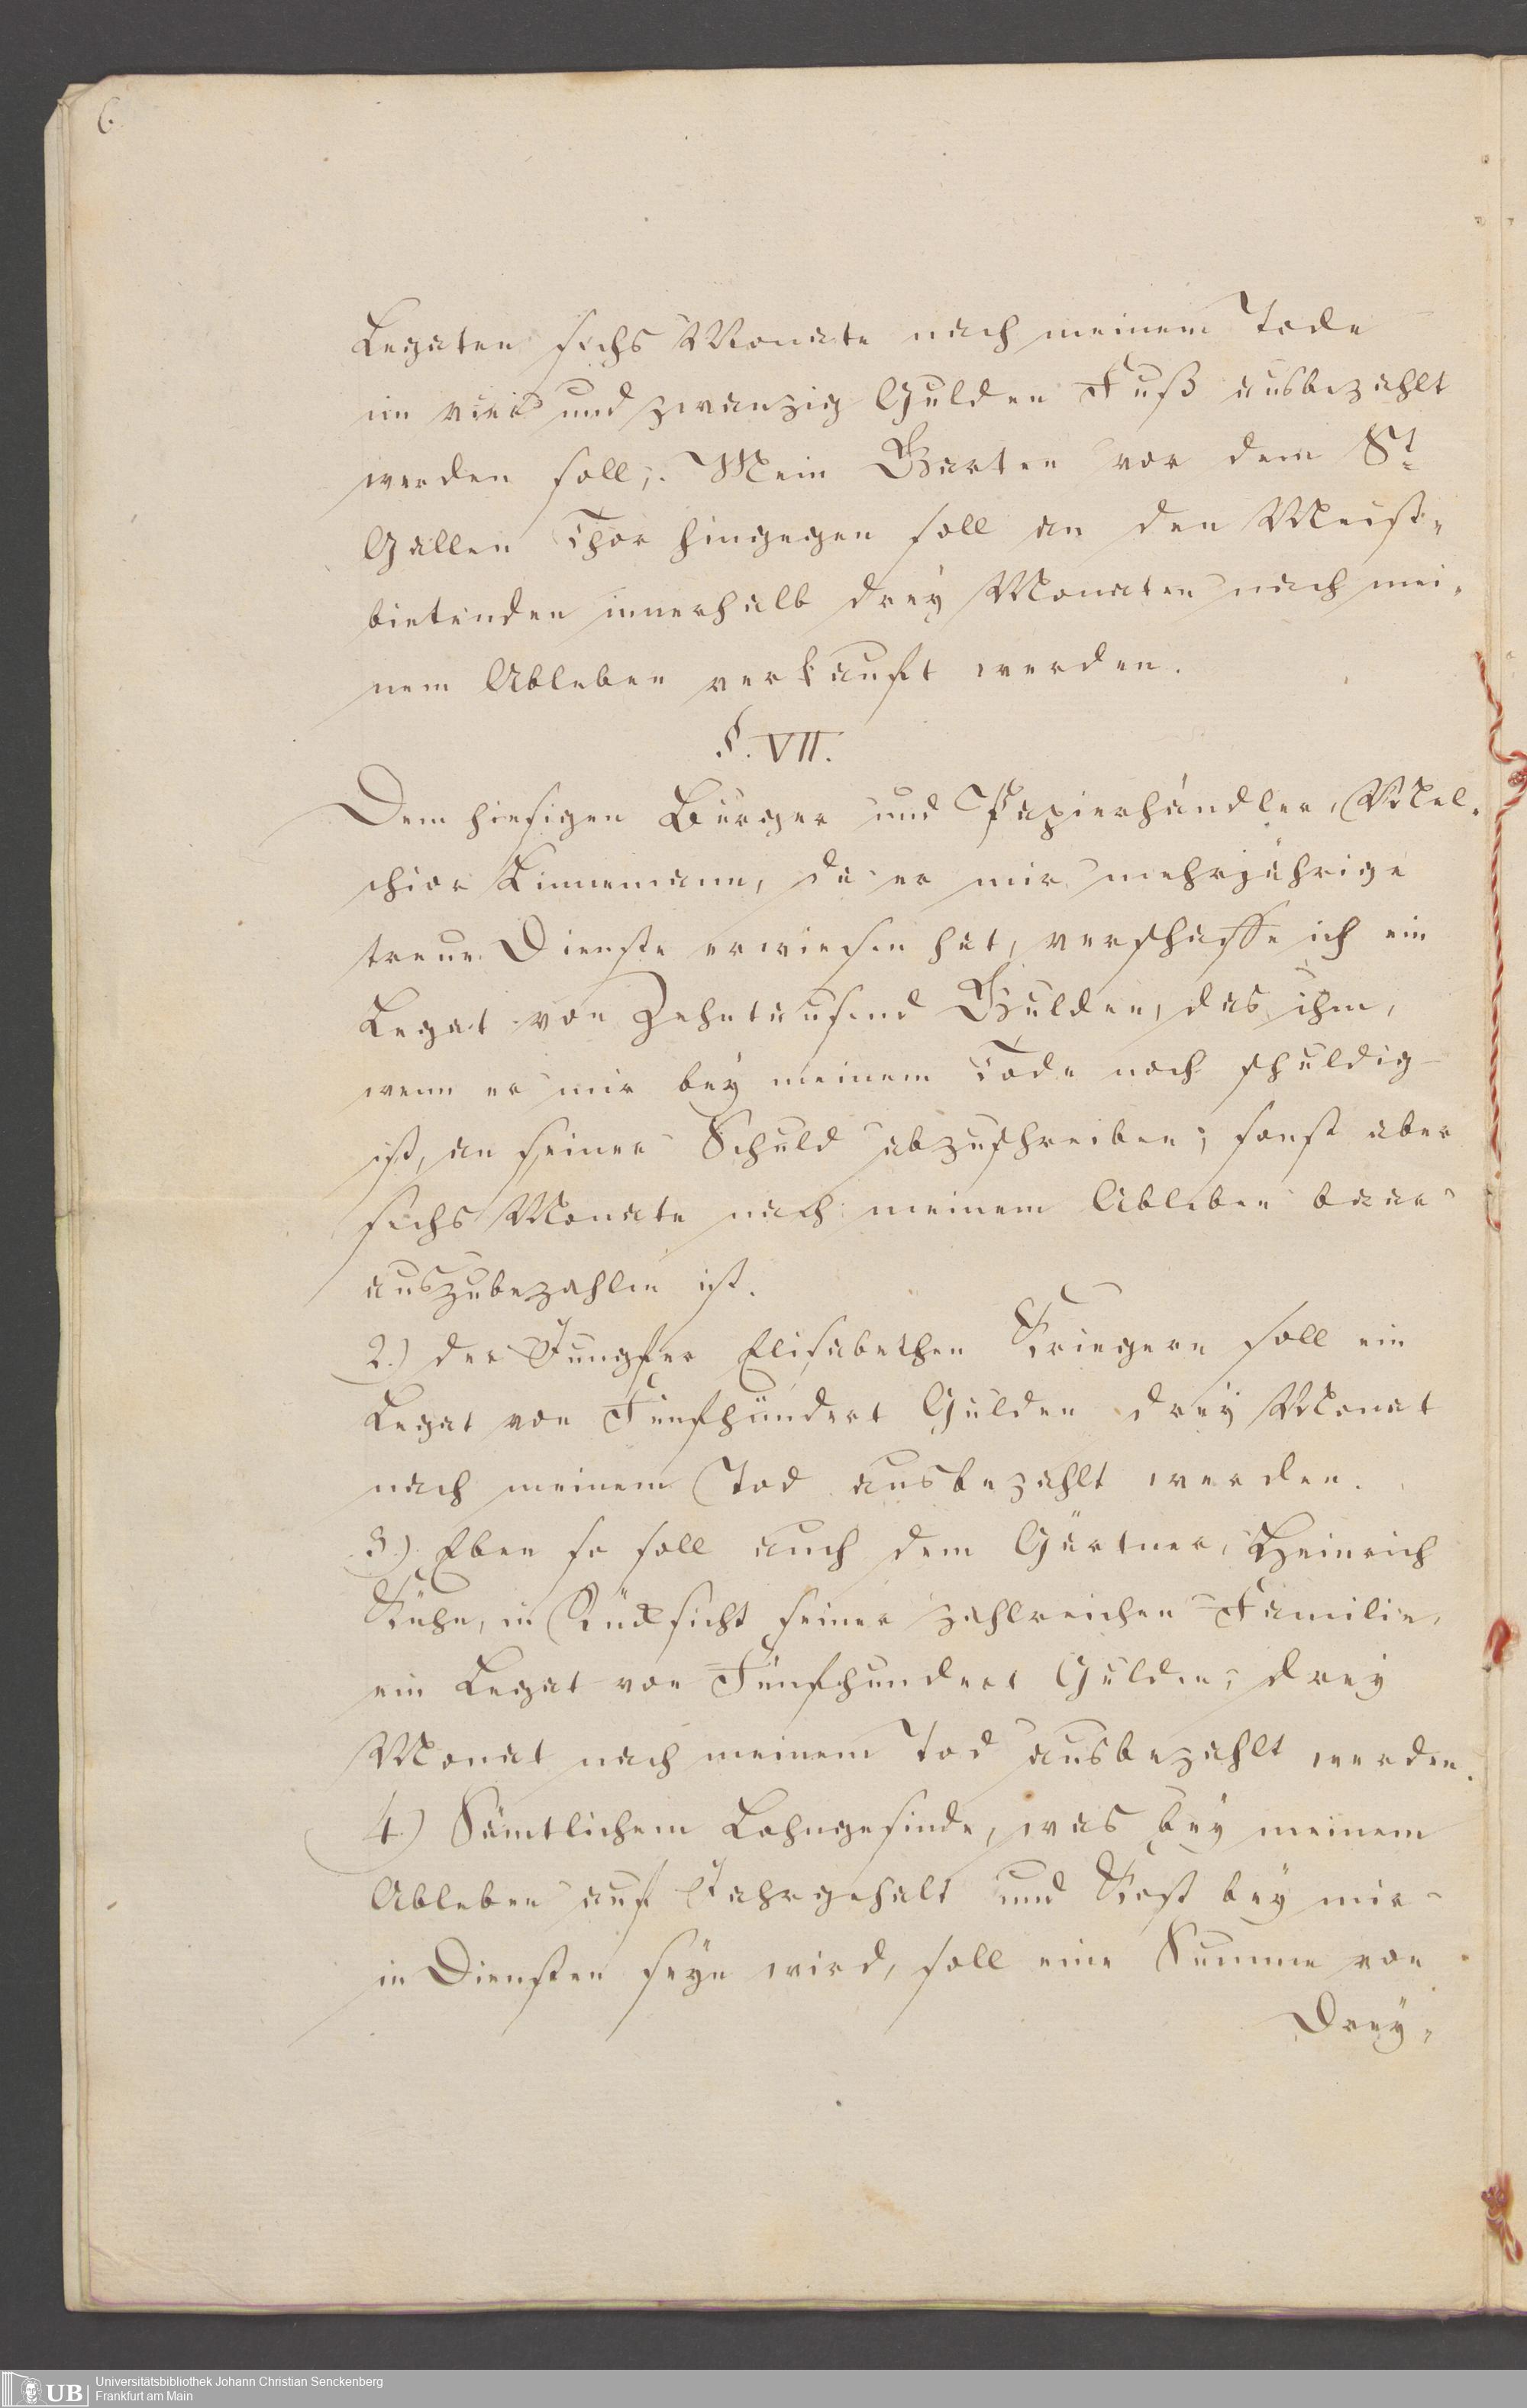 6.
Legaten sechs Monate nach meinem Tode
im vier und zwanzig Gulden Fuß ausbezahlt
werden soll; Mein Garten vor dem St
Gallen Thor hingegen soll an den Meist-
bietenden innerhalb drey Monaten nach mei-
nem Ableben verkauft werden.
§. VII.
Dem hiesigen Bürger und Papierhändler, Mel-
chior Linnemann, da er mir mehrjährige
treue Dienste erwiesen hat, verschaffe ich ein
Legat von Zehntausend Gulden, das ihm,
wenn er mir bey meinem Tode noch schuldig
ist, an seiner Schuld abzuschreiben; sonst aber
sechs Monate nach meinem Ableben baar
auszubezahlen ist.
2.) der Jungfer Elisabethen Kriegern soll ein
Legat von Fünfhundert Gulden drey Monat
nach meinem Tod ausbezahlt werden.
3.) Eben so soll auch dem Gärtner, Heinrich
Kühn, in Rücksicht seiner zahlreichen Familie,
ein Legat von Fünfhundert Gulden, drey
Monat nach meinem Tod ausbezahlt werden.
4.) Sämtlichem Lohngesinde, was bey meinem
Ableben auf Jahrgehalt und Kost bey mir
in Diensten seyn wird, soll eine Summe von
Drey-
UB
Universitätsbibliothek Johann Christian Senckenberg
Frankfurt am Main